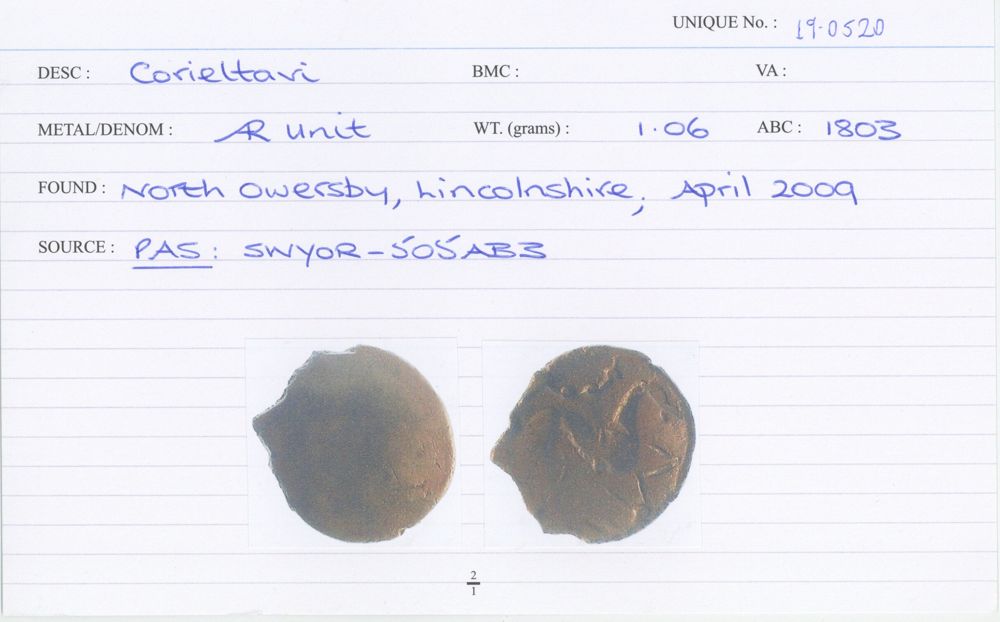 UNIQUE No. : 19-0520
DESC : Corieltavi BMC : VA :
METAL/DENOM : AR unit WT. (grams) : 1.06 ABC : 1803
FOUND : North Owersby, Lincolnshire, April 2009
SOURCE : PAS: SWYOR-505AB3
2
1